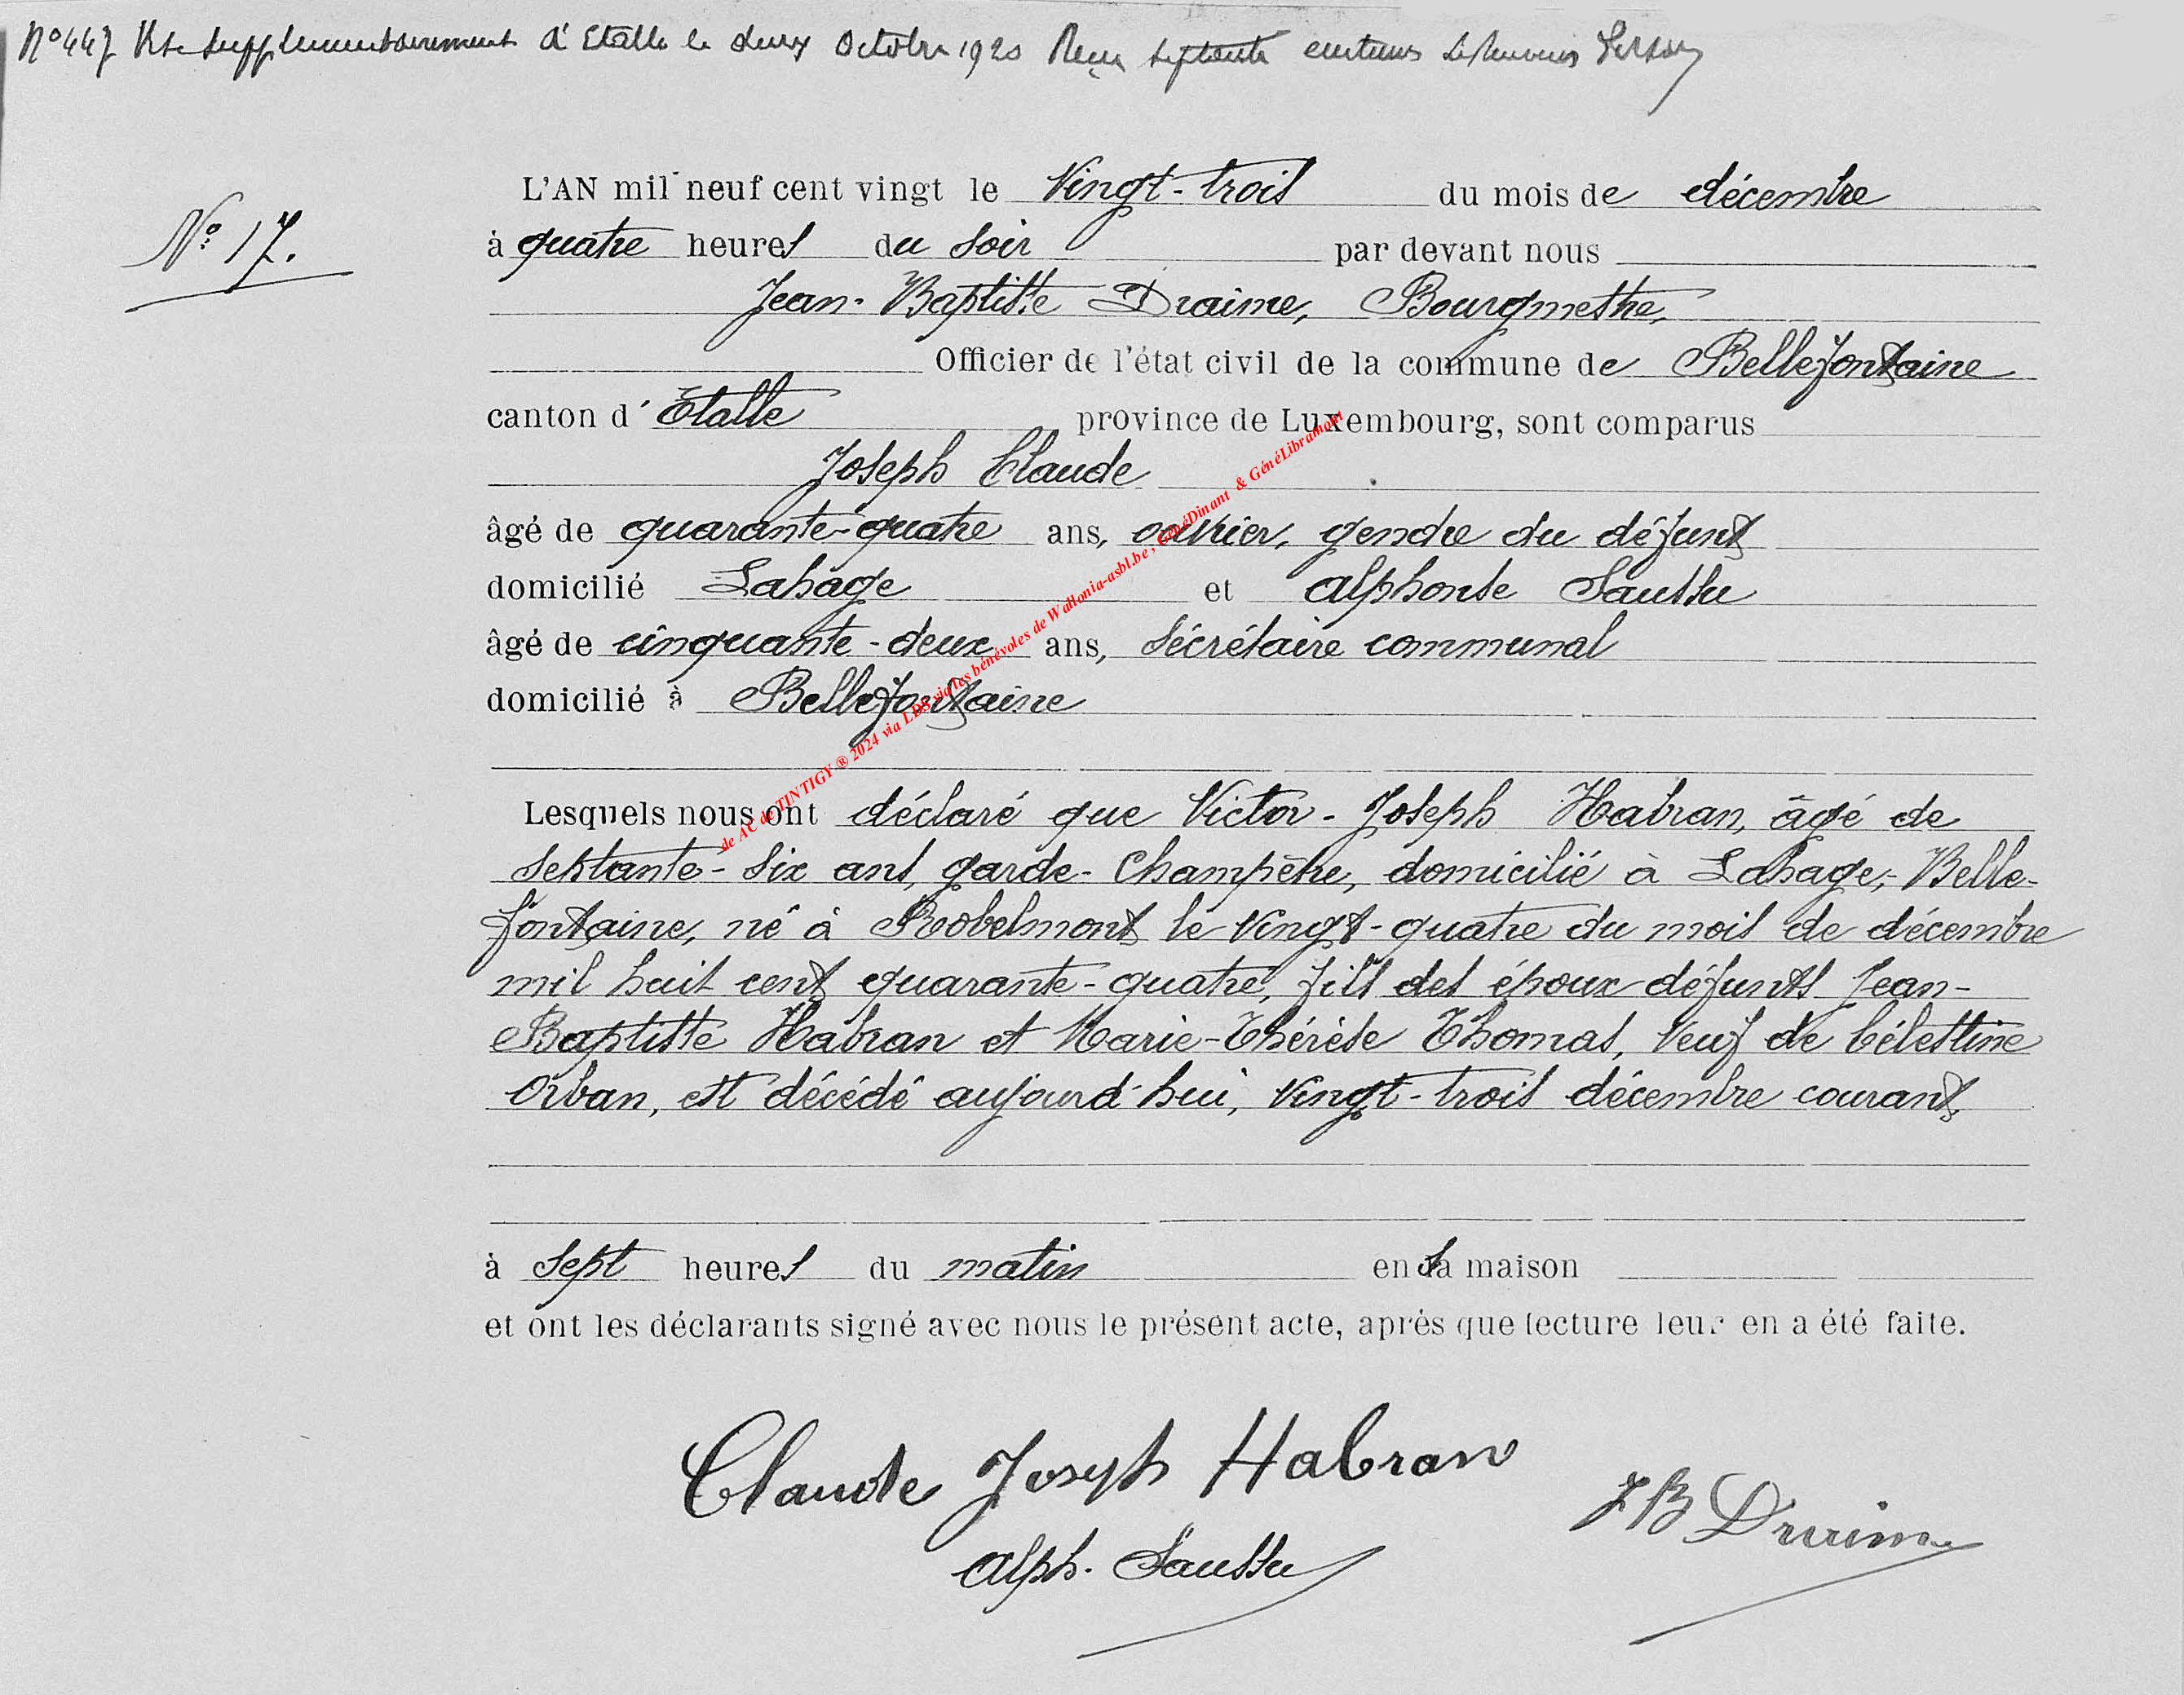 N° 447 Visé supplémentairement à Etalle le deux Octobre 1920 Reçu septante centimes Le Receveur
L'AN mil neuf cent vingt le Vingt-trois du mois de décembre
N° 17.
à quatre heures du soir par devant nous
Jean-Baptiste Draime, Bourgmestre,
Officier de l'état civil de la commune de Bellefontaine
canton d'Etalle province de Luxembourg, sont comparus
Joseph Claude
âgé de quarante-quatre ans, ouvrier, gendre du défunt
domicilié Lahage et Alphonse Saussu
âgé de cinquante-deux ans, sécrétaire communal
domicilié à Bellefontaine
Lesquels nous ont déclaré que Victor-Joseph Habran, âgé de
septante-six ans, garde-Champêtre, domicilié à Lahage-Belle-
fontaine, né à Robelmont le vingt-quatre du mois de décembre
mil huit cent quarante-quatre, fils des époux défunts Jean-
Baptiste Habran et Marie-Thérèse Thomas, Veuf de Célestine
Orban, est décédé aujourd'hui, vingt-trois décembre courant,
à sept heures du matin en sa maison
et ont les déclarants signé avec nous le présent acte, après que lecture leur en a été faite.
Claude Joseph Habran
JB Draime
Alph. Saussu
de AC de TINTIGY ® 2024 via LDS via les bénévoles de Wallonia-asbl.be, GénéDinant & GénéLibramont